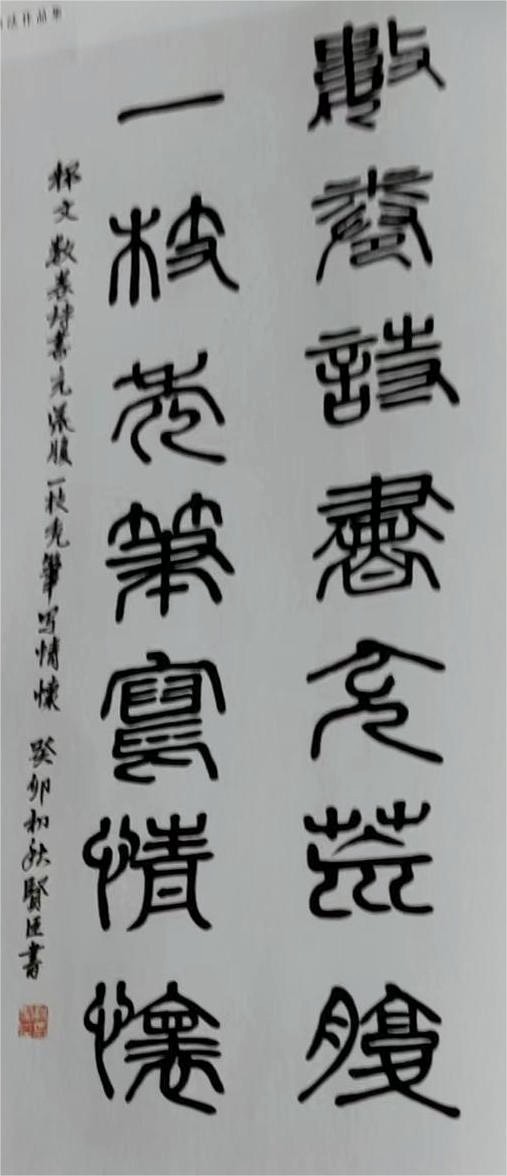 法作品集
數卷詩書充荒腹
一枝秃筆寫情懷
释文 數卷詩書充荒腹 一枝秃筆写情懷 癸卯初秋賢臣書